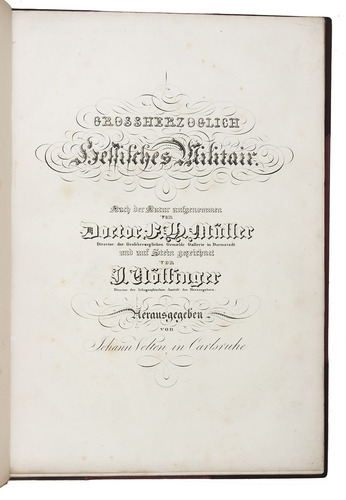 GROSSHERZOGLICH
Hessisches Militair.
Nach der Natur aufgenommen
VON
Doctor F. H. Müller
Director der Großherzoglichen Gemälde Gallerie in Darmstadt
und auf Stein gezeichnet
VON
J. Völlinger
Director der lithographischen Anstalt des Herausgebers.
Herausgegeben
von
Johann Velten in Carlsruhe